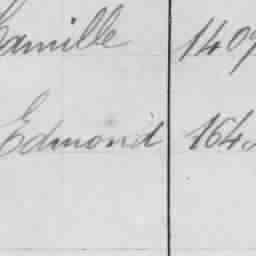 Camille 1409
Edmond 164